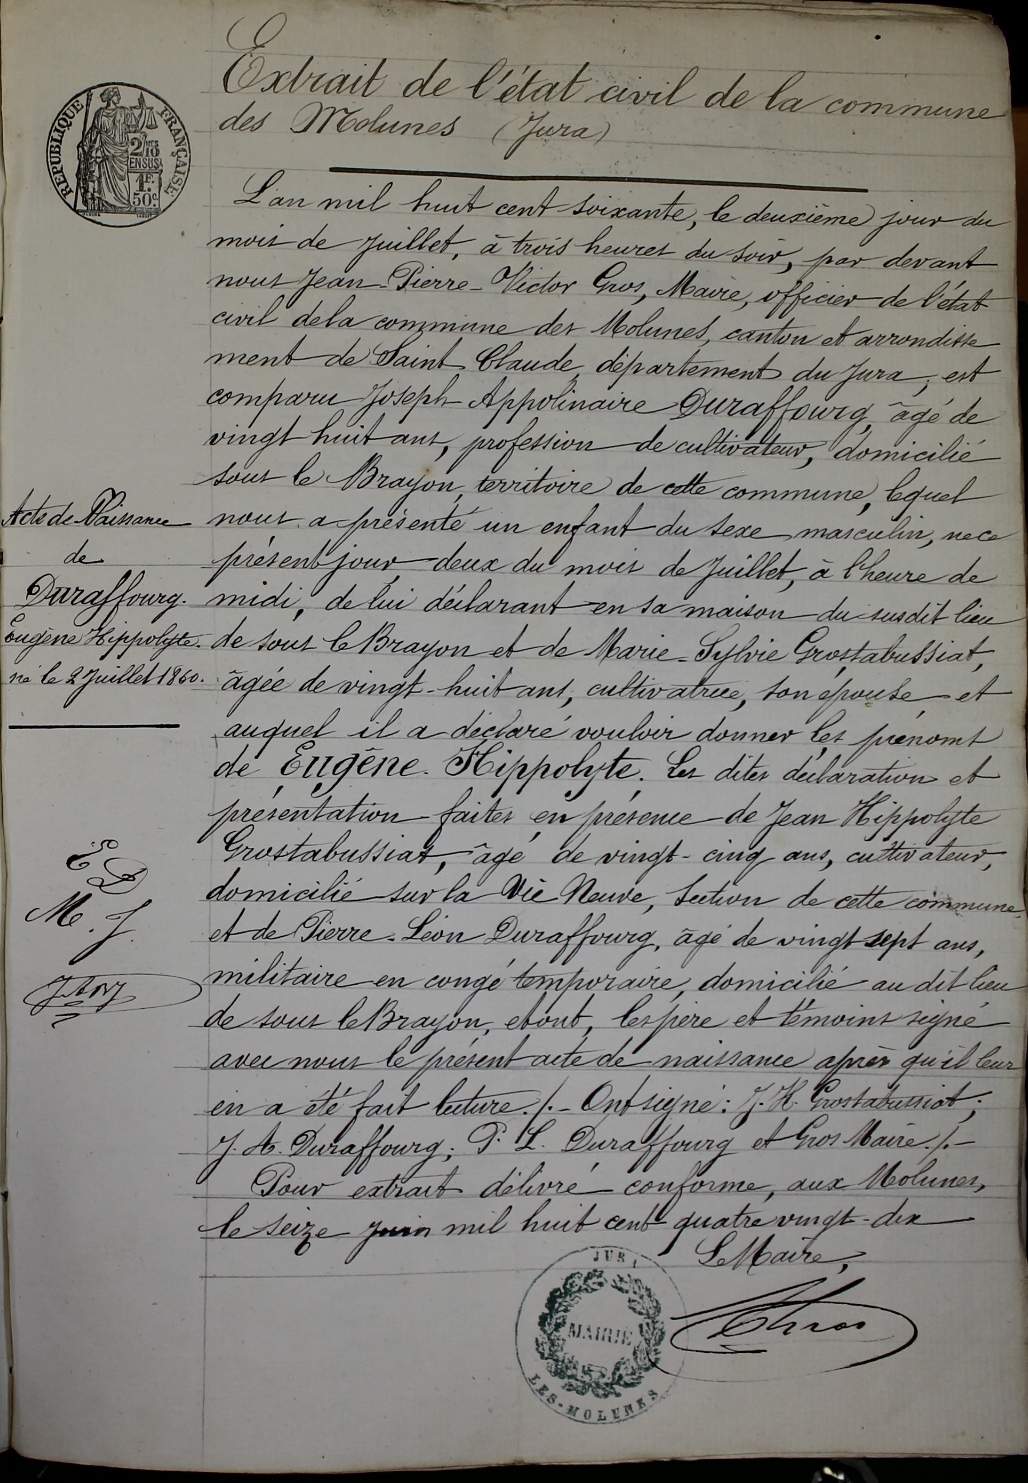 Extrait de l'état civil de la commune
des Molunes (Jura)
RÉPUBLIQUE FRANÇAISE
2/10
EN SUS
1F.
50c.
L'an mil huit cent soixante, le deuxième jour du
mois de Juillet, à trois heures du soir, par devant
nous Jean-Pierre-Victor Gros, Maire, officier de l'état
civil de la commune des Molunes, canton et arrondisse
ment de Saint Claude, département du Jura, est
comparu Joseph-Appolinaire Duraffourg, âgé de
vingt huit ans, profession de cultivateur, domicilié
sous le Brayon, territoire de cette commune, lequel
nous a présenté un enfant du sexe masculin, né ce
présent jour, deux du mois de Juillet, à l'heure de
midi, de lui déclarant en sa maison du susdit lieu
de sous le Brayon et de Marie-Sylvie Grostabussiat,
âgée de vingt-huit ans, cultivatrice, son épouse et
auquel il a déclaré vouloir donner les prénoms
de Eugène-Hippolyte. Les dites déclaration et
présentation faites en présence de Jean Hippolyte
Grostabussiat, âgé de vingt-cinq ans, cultivateur,
domicilié sur la Vie Neuve, section de cette commune
et de Pierre-Léon Duraffourg, âgé de vingt sept ans,
militaire en congé temporaire, domicilié au dit lieu
de sous le Brayon, et ont, les père et témoins signé
avec nous le présent acte de naissance après qu'il leur
en a été fait lecture ./.- Ont signé: J. H. Grostabussiat;
J. A. Duraffourg; P. L. Duraffourg et Gros Maire ./.-
Pour extrait délivré conforme, aux Molunes,
le seize juin mil huit cent quatre vingt-dix
Le Maire,
Acte de Naissance
de
Duraffourg.
Eugène Hippolyte.
né le 2 Juillet 1860.
E D
M. J.
JURA
MAIRIE
LES-MOLUNES